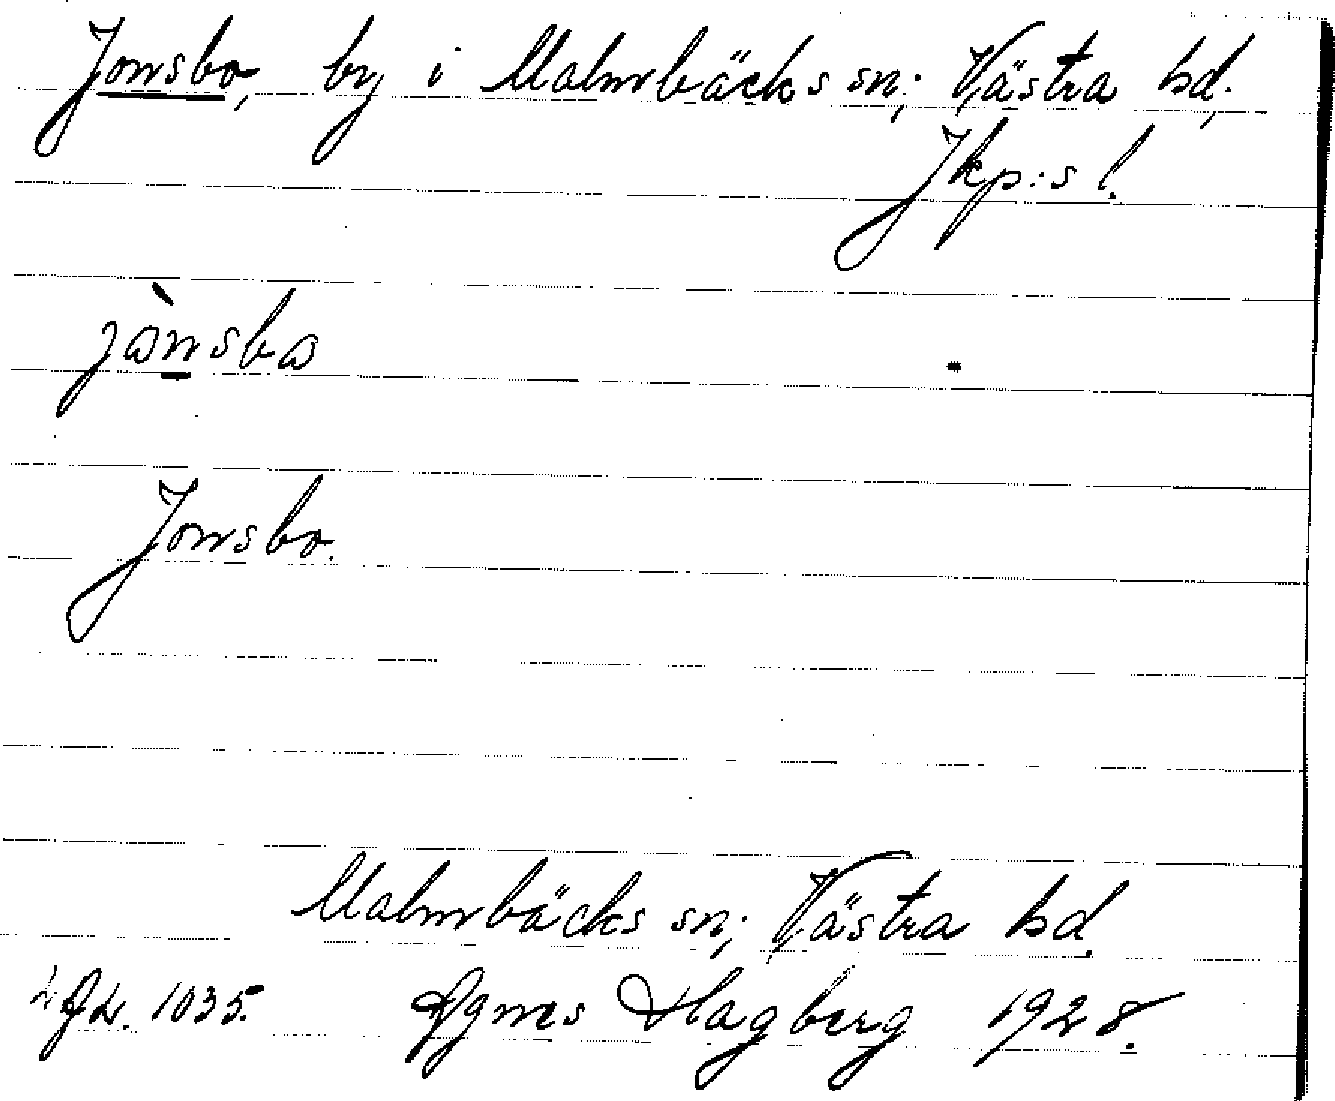 Jonsbo, by i Malmbäcks sn; Västra hd,
Jkp:s l.
jònsba
Jonsbo.
Malmbäcks sn; Västra hd.
1035. Agnes Hagberg 1928.